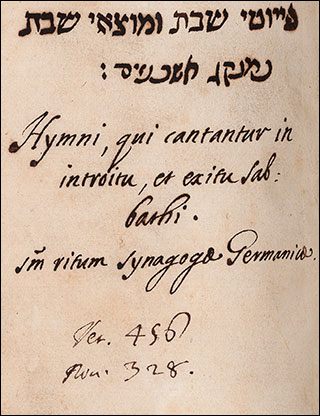 פיוטי שבת ומוצאי שבת
כמנהג אשכנזים :
Hymni, qui cantantur in
introitu, et exitu sab:
bathi.
sm̄ ritum synagogæ Germanicæ.
Vet. 456
Nov. 328.